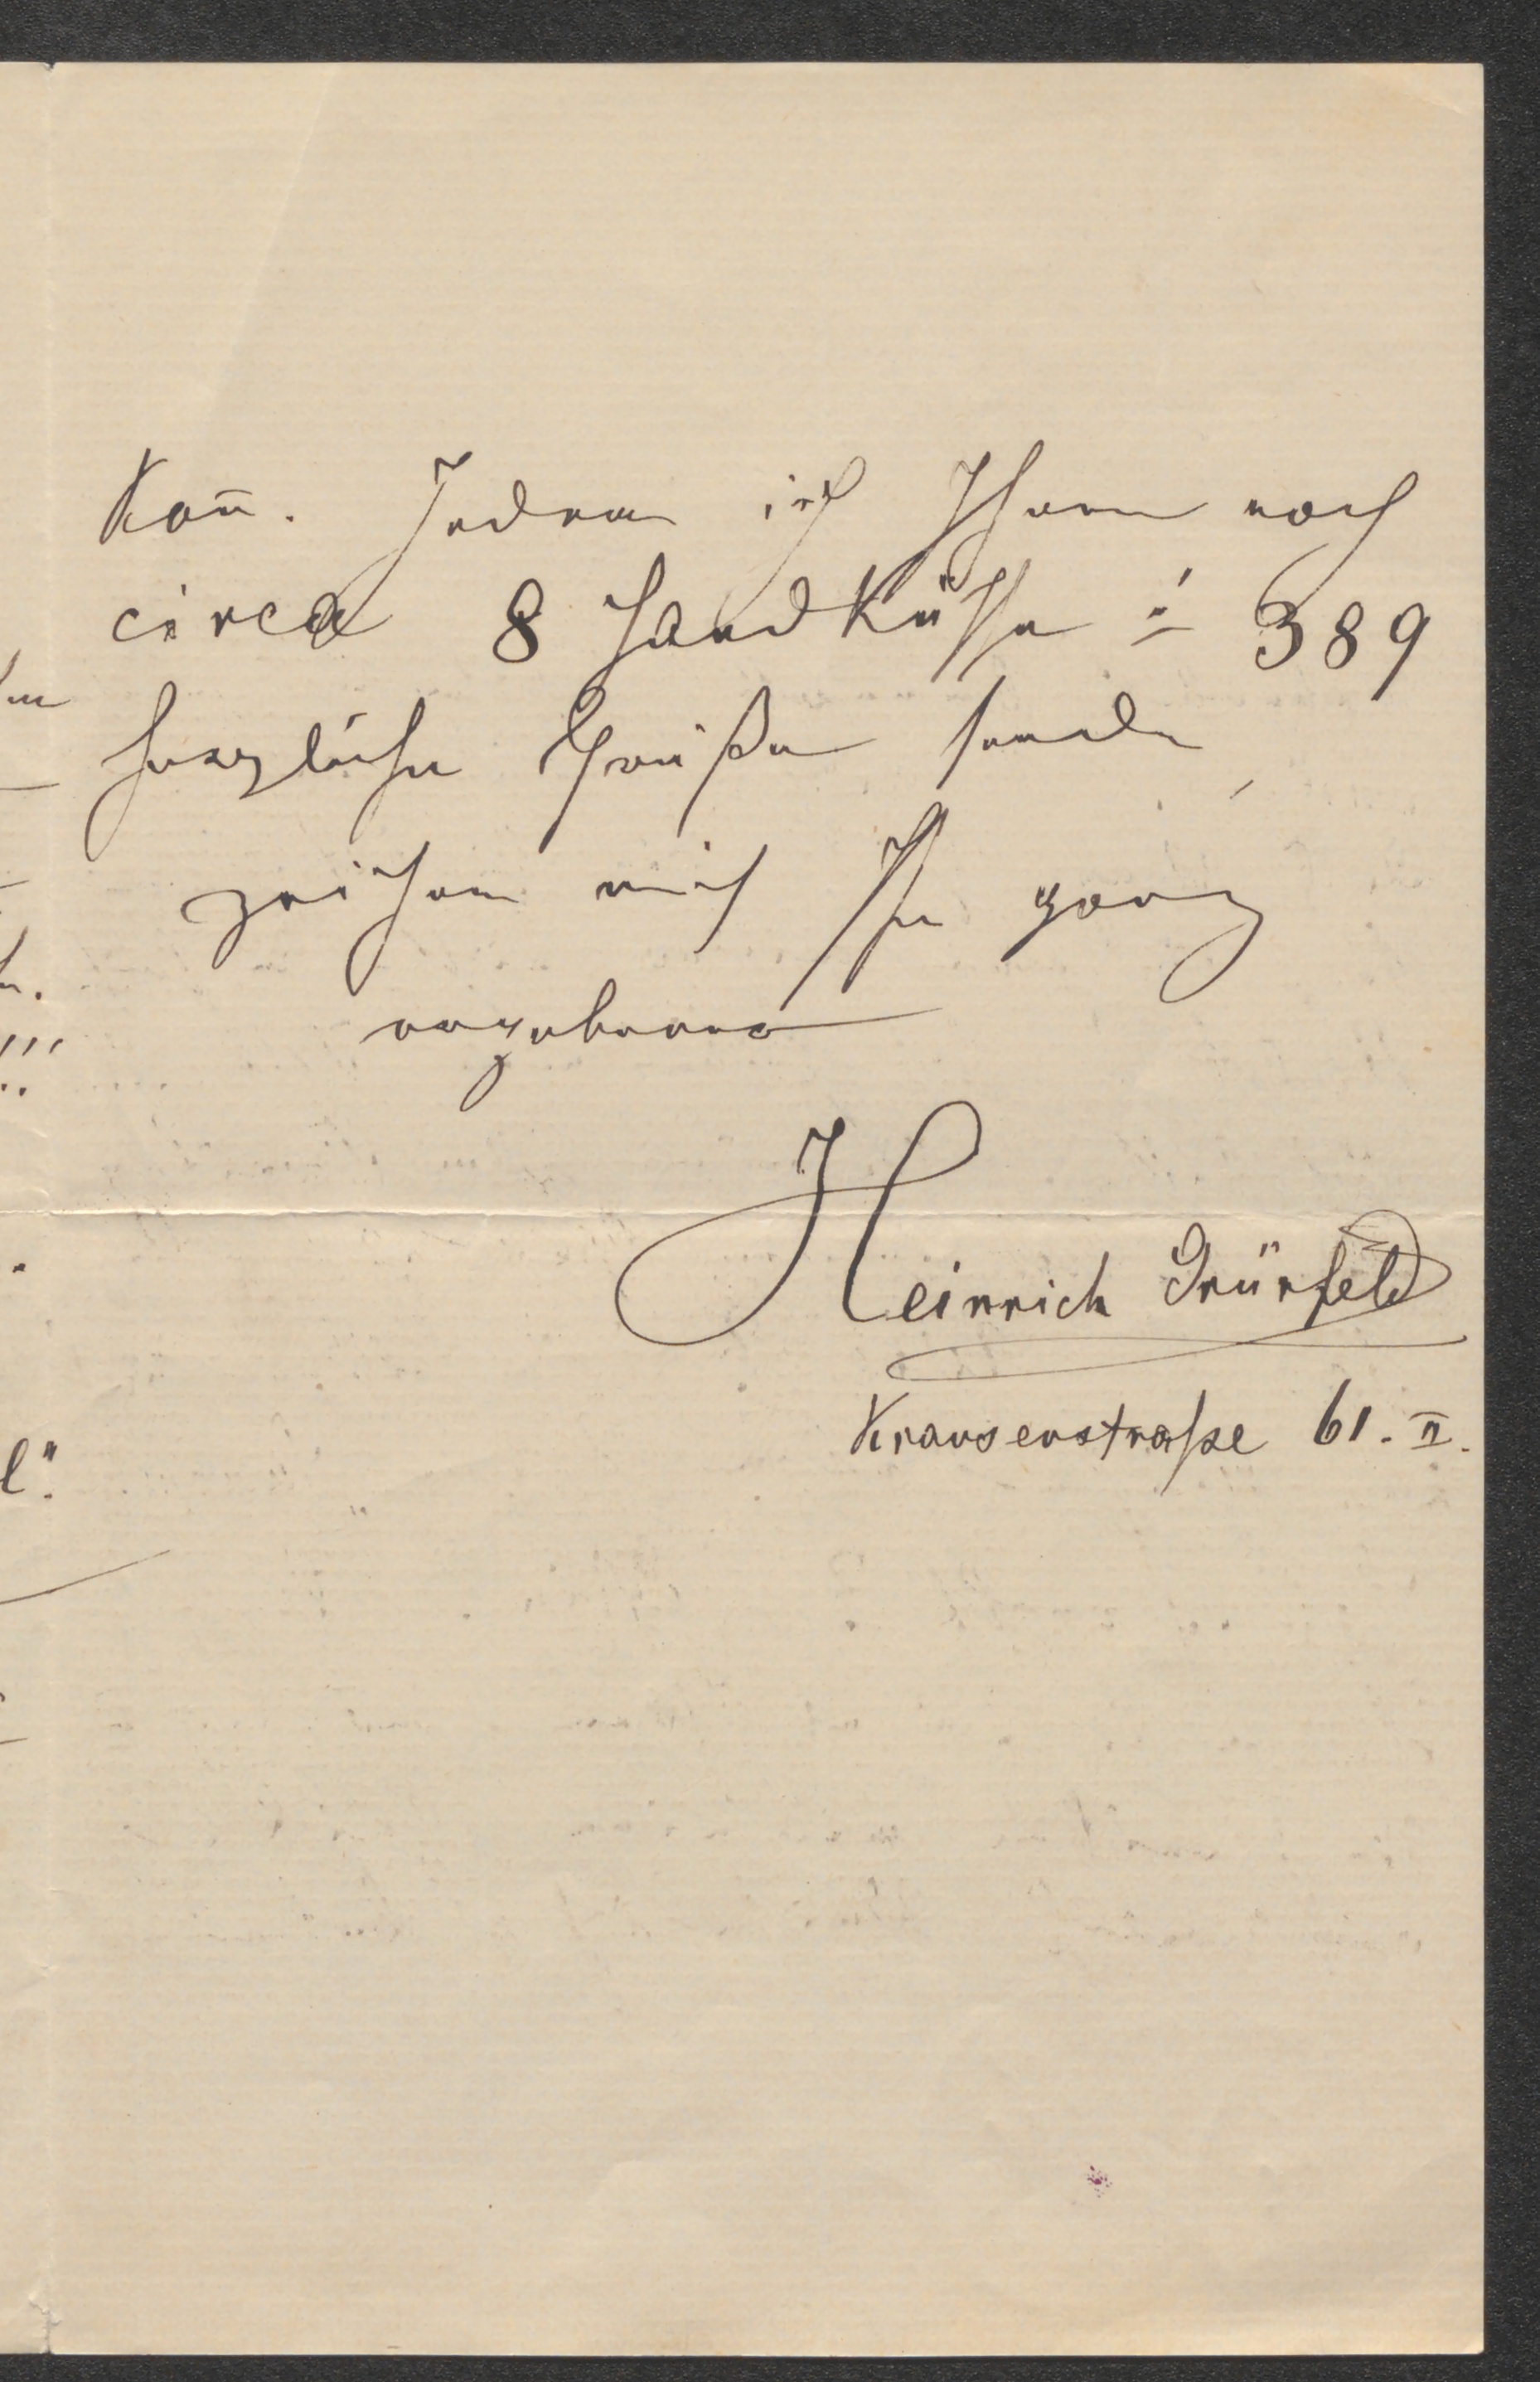 kan̄. Indem ich Ihnen noch
circa 8 Handküsse ÷ 389
herzliche Grüße sende,
zeichne mich Ihr ganz
ergebener
Heinrich Grünfeld
Krausenstraße 61. II.